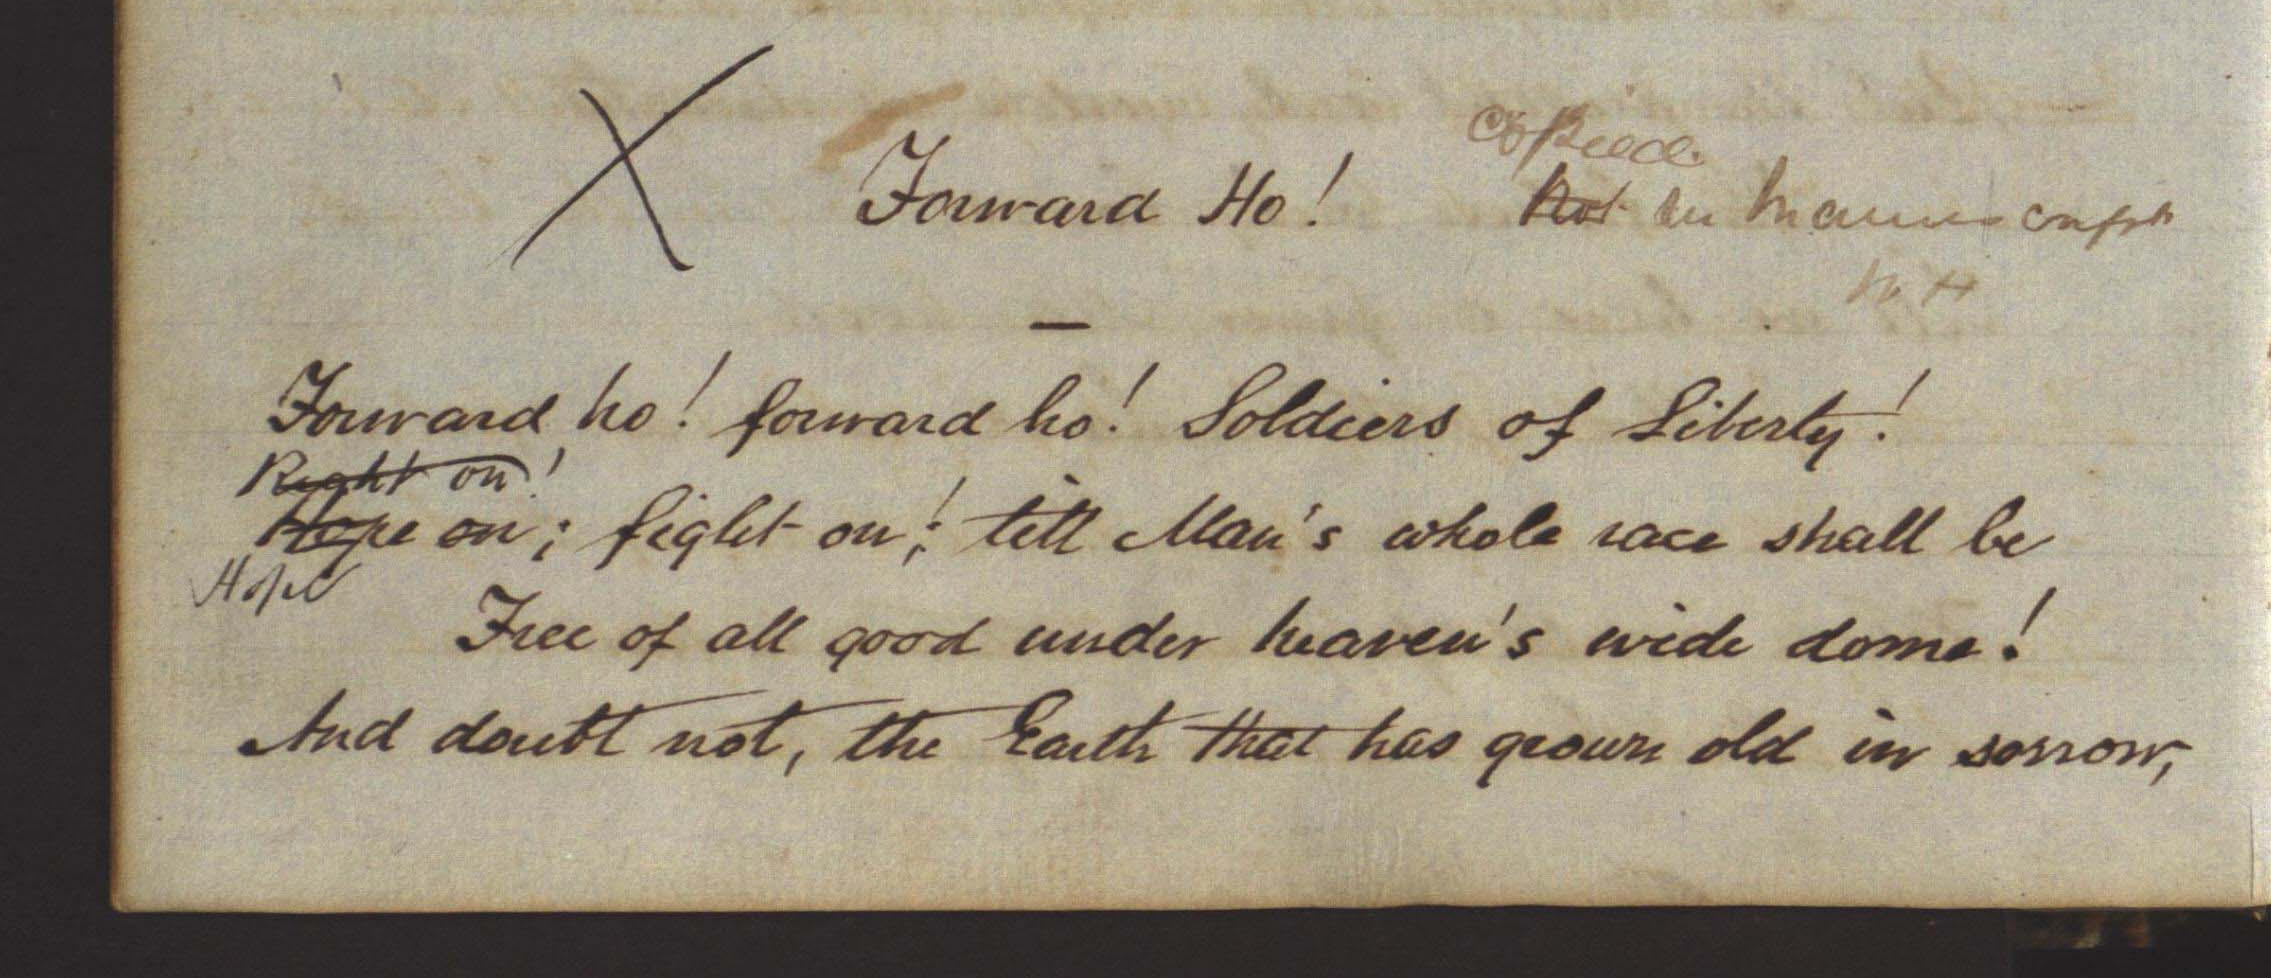 copied.
Forward Ho! Not in Manuscript
Forward ho! forward ho! Soldiers of Liberty!
Right on!
Hope on; fight on!; till Man's whole race shall be
Hope
Free of all good under heaven's wide dome!
And doubt not, the Earth that has grown old in sorrow,